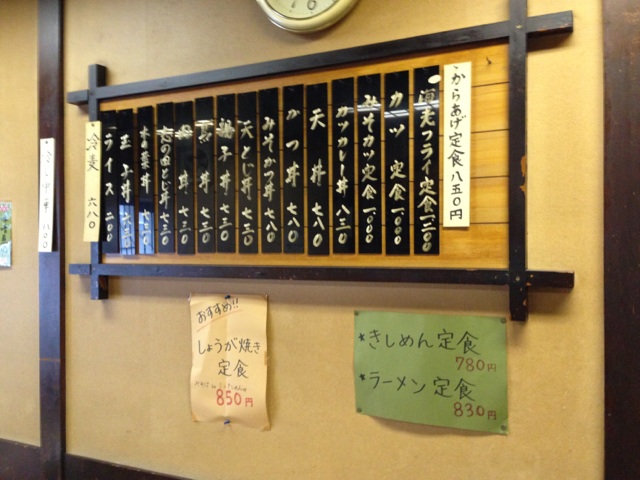 からあげ定食 八五〇円
海老フライ定食 一、二〇〇
カツ定食 一、〇〇〇
みそカツ定食 一、〇〇〇
カツカレー丼 八三〇
天丼 七八〇
かつ丼 七八〇
みそかつ丼 七八〇
天とじ丼 七三〇
親子丼 七三〇
丼 七三〇
丼 七三〇
とじ丼 七三〇
木の葉丼 七三〇
玉子丼 六三〇
ライス 二〇〇
冷麦 六八〇
おすすめ!!
しょうが焼き
定食
850円
*きしめん定食
780円
*ラーメン定食
830円